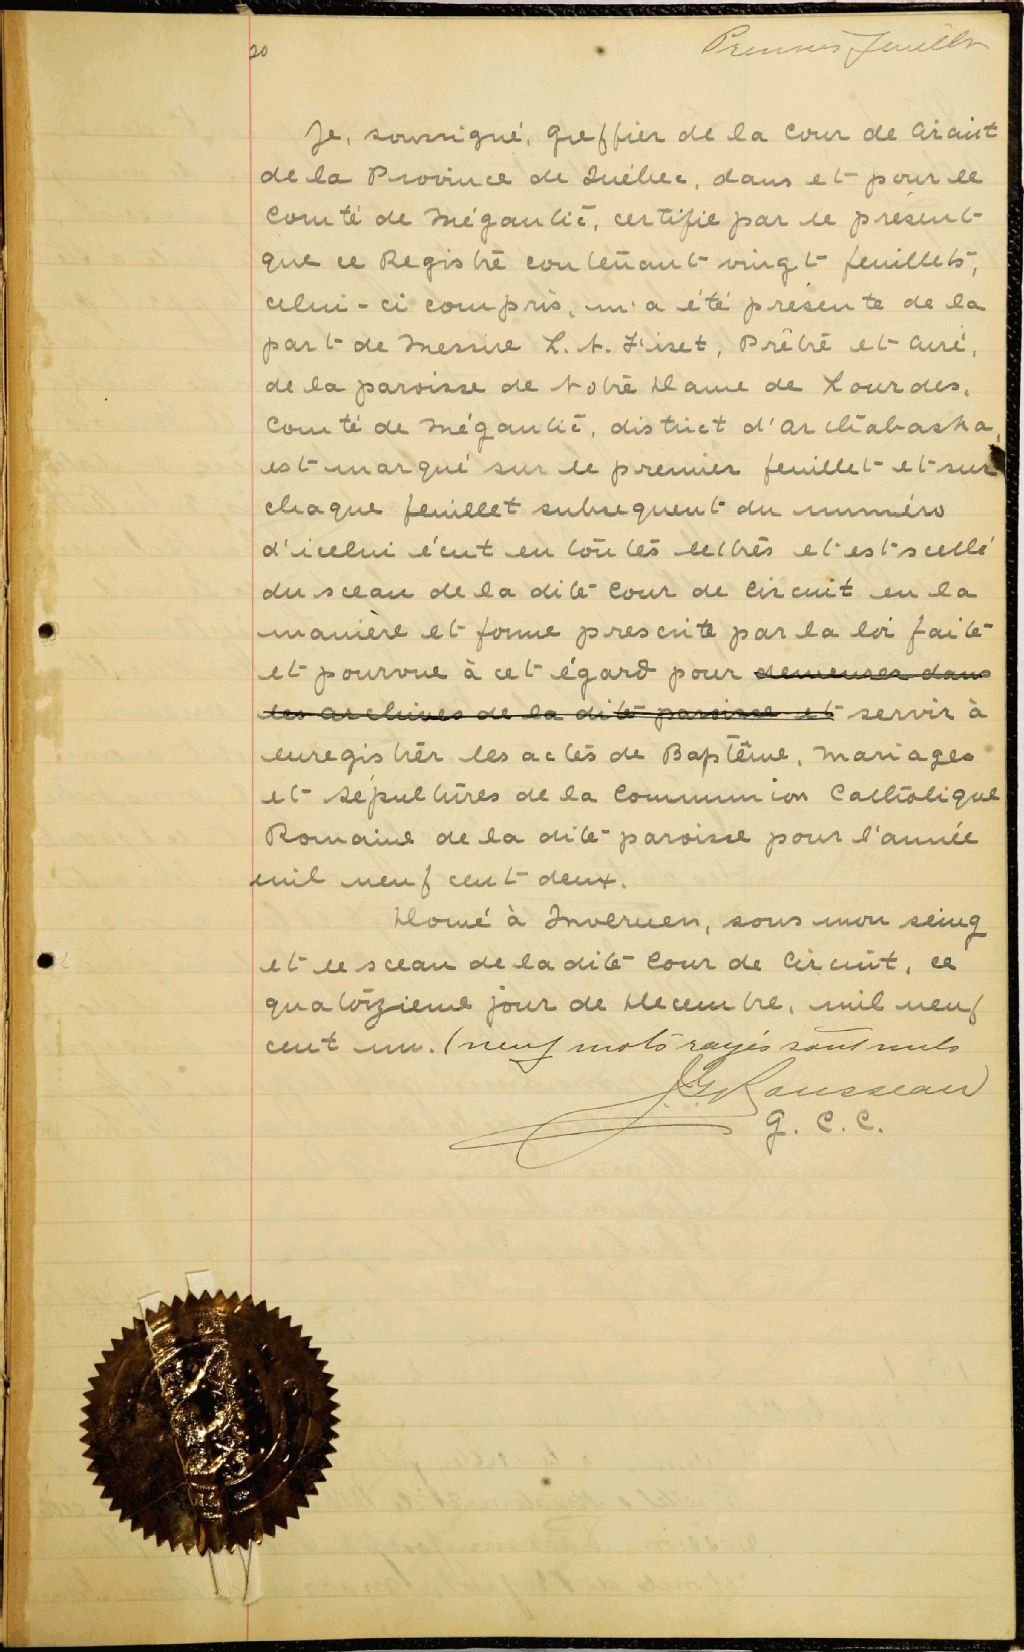 20
Premier feuillet
Je, soussigné, Greffier de la Cour de Circuit
de la Province de Québec, dans et pour le
Comté de Mégantic, certifie par le présent
que ce Registre contenant vingt feuillets,
celui-ci compris, m'a été présente de la
part de Messire L. N. Fiset, Prêtre et Curé,
de la paroisse de Notre Dame de Lourdes,
Comté de Mégantic, district d'Arthabaska,
est marqué sur le premier feuillet et sur
chaque feuillet subsequent du numéro
d'icelui écrit en toutes lettres et est scellé
du sceau de la dite Cour de Circuit en la
manière et forme prescrite par la loi faite
et pourvue à cet égard pour demeurer dans
les archives de la dite paroisse et servir à
enregistrer les actes de Baptême, Mariages
et Sépultures de la Communion Catholique
Romaine de la dite paroisse pour l'année
mil neuf cent deux.
Donné à Inverness, sous mon seing
et le sceau de la dite Cour de Circuit, ce
quatorzieme jour de Decembre, mil neuf
cent un. (neuf mots rayés sont nuls
J. G. Rousseau
G. C. C.